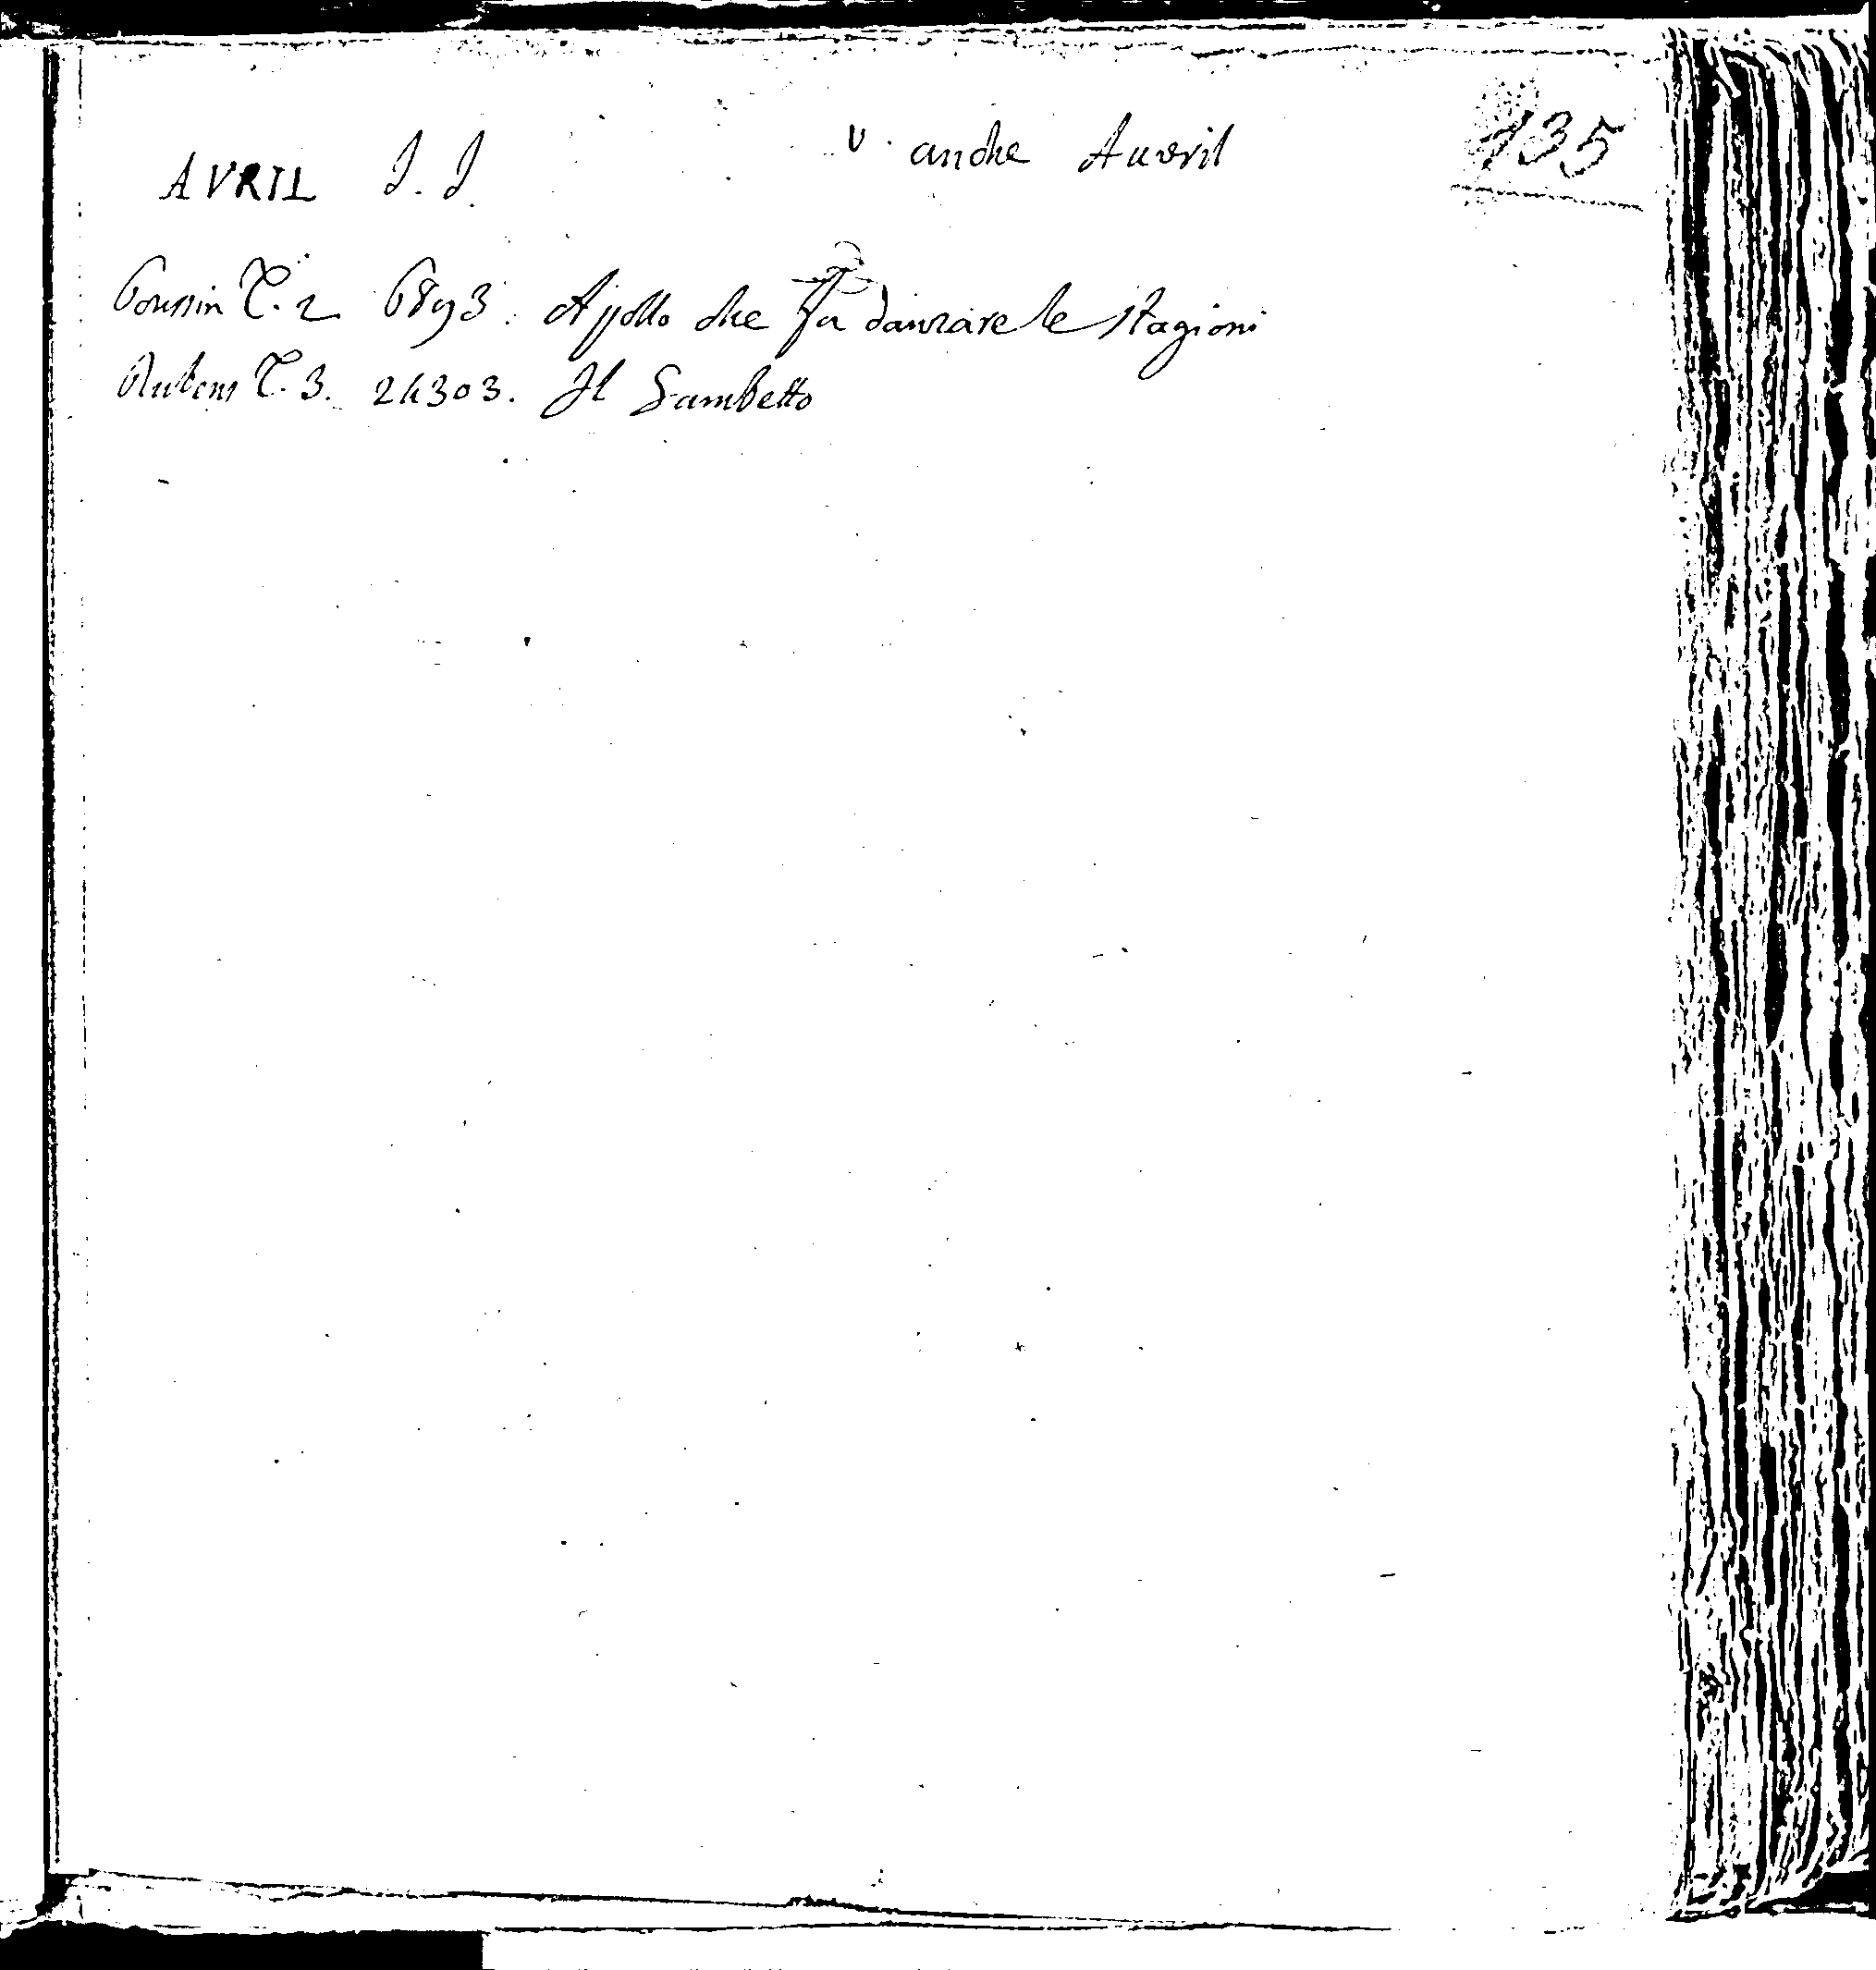 AVRIL J. J. v. anche Auvril 135
Poussin T. 2 6893. Apollo che fa danzare le stagioni
Rubens T. 3. 24303. Il Gambetto